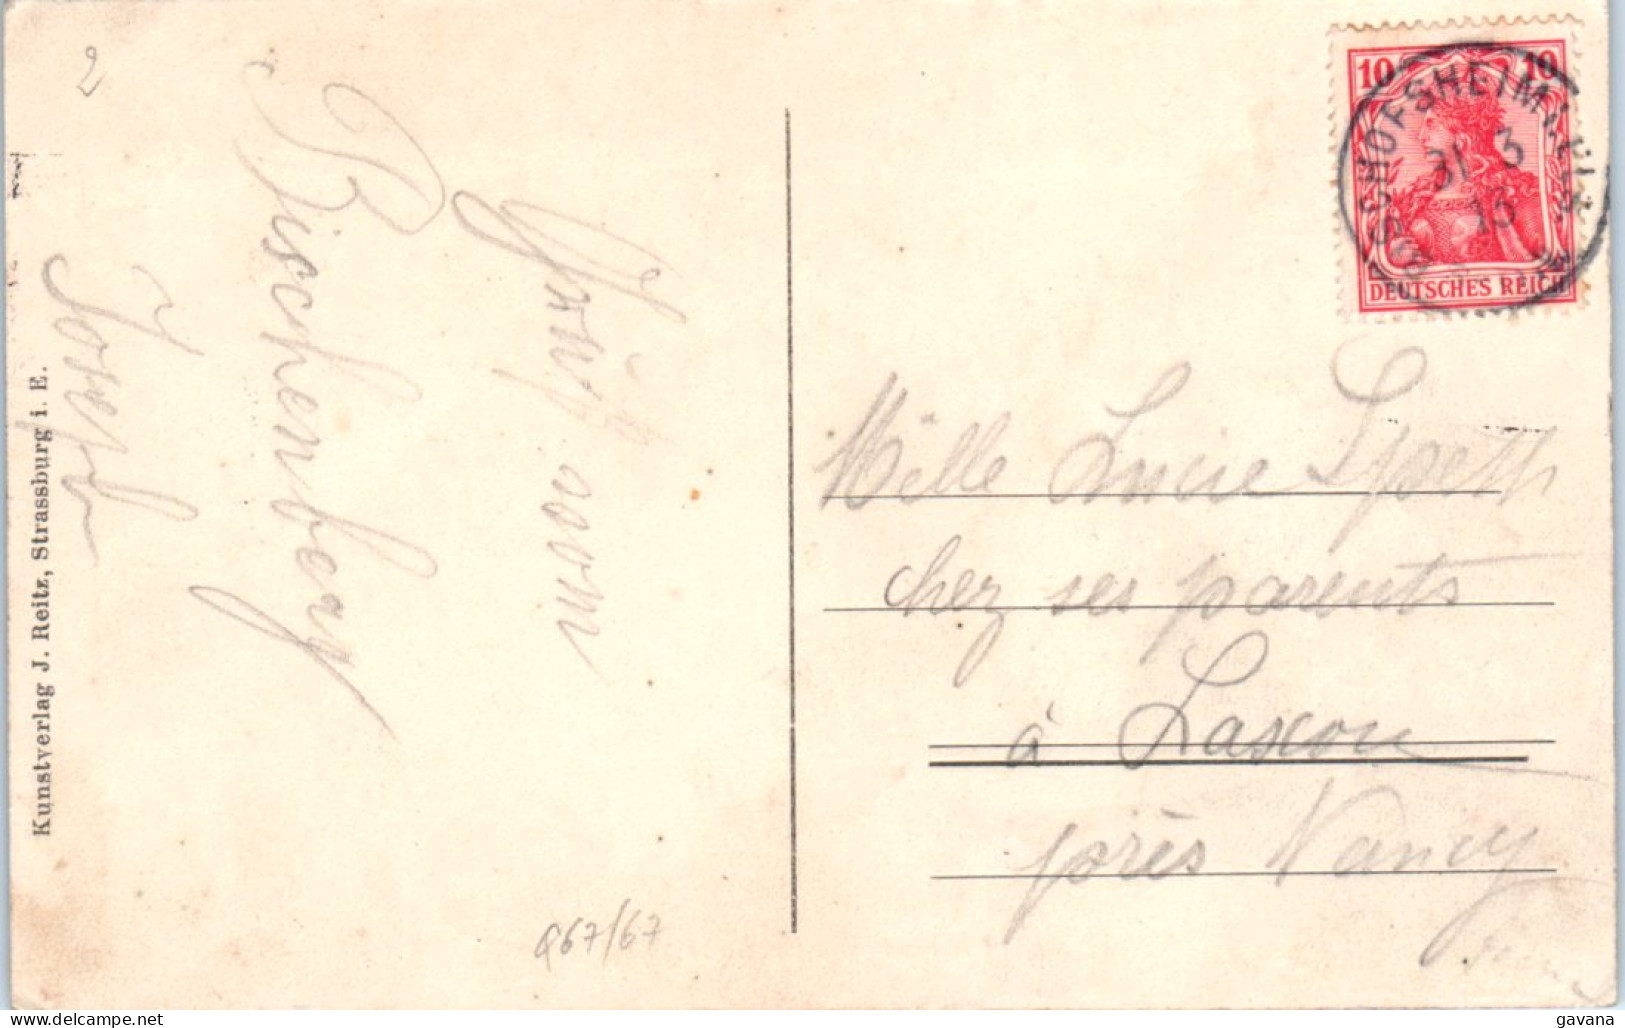 2
Gruß vom
Bischenberg
Joseph
Kunstverlag J. Reitz, Strassburg i. E.
10 10
DEUTSCHES REICH
BISCHOFSHEIM
31 3
13
Melle Lucie Spaeth
chez ses parents
à Laxou
près Nancy
Q67/67
gavana